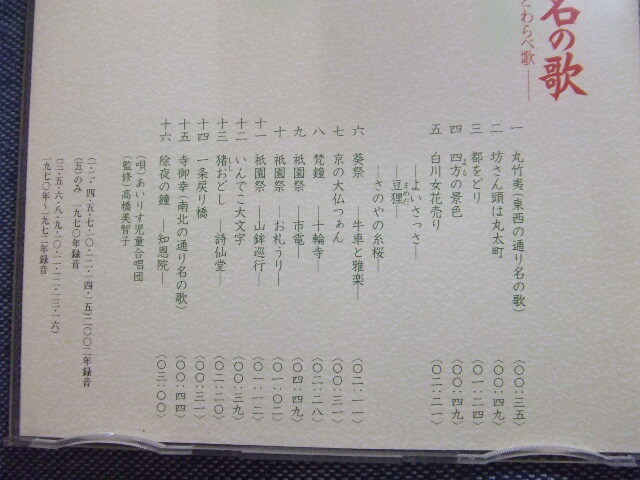 名の歌
とわらべ歌――
一 丸竹夷(東西の通り名の歌) 〈〇〇:三五〉
二 坊さん頭は丸太町 〈〇〇:四九〉
三 都をどり 〈〇一:二四〉
四 四方の景色 〈〇〇:四九〉
五 白川女花売り 〈〇二:二一〉
――よいさっさ――
――豆狸――
まめだ
――さのやの糸桜――
六 葵祭 ――牛車と雅楽―― 〈〇二:一一〉
七 京の大仏つぁん 〈〇〇:三一〉
八 梵鐘 ――十輪寺―― 〈〇二:二八〉
九 祇園祭 ――市電―― 〈〇四:四九〉
十 祇園祭 ――お札うり―― 〈〇一:〇二〉
十一 祇園祭 ――山鉾巡行―― 〈〇一:一二〉
十二 いんでこ大文字 〈〇〇:三九〉
十三 猪おどし ――詩仙堂―― 〈〇二:二〇〉
十四 一条戻り橋 〈〇〇:三一〉
十五 寺御幸(南北の通り名の歌) 〈〇〇:四四〉
十六 除夜の鐘 ――知恩院―― 〈〇三:〇〇〉
(唄)あいりす児童合唱団
(監修)高橋美智子
(一・二・四・五・七・一〇・一二・一四・一五)二〇〇二年録音
(五)のみ 一九七〇年録音
(三・五・六・八・九・一〇・一一・一二・一三・一六)
一九七〇年～一九七二年録音